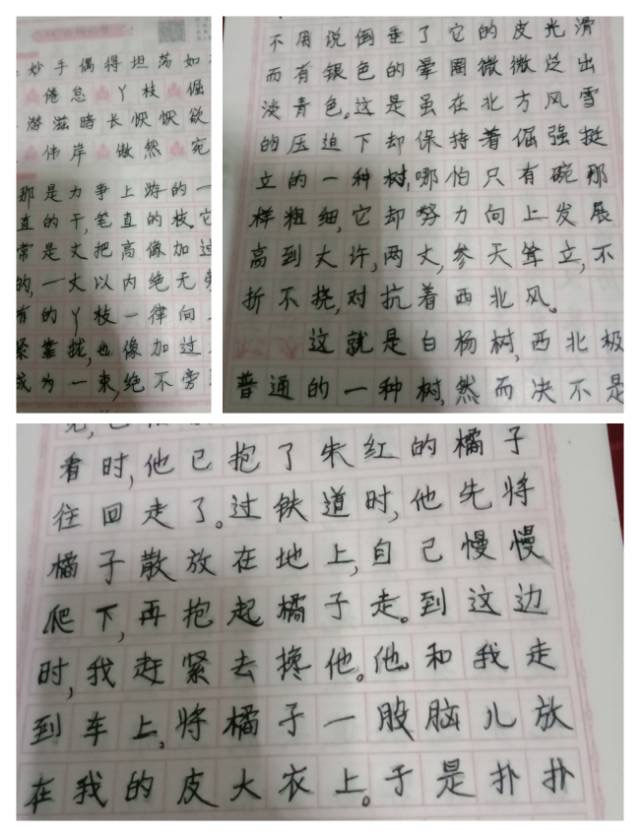 妙手偶得坦荡如
倦怠 丫枝 倔
游滋時长怏怏欲
伟岸 傲然 宛
那是力争上游的一
直的干,笔直的枝。它
常是丈把高像加过
的,一丈以内绝无旁
有的丫枝一律向
紧靠拢,也像加过
成为一束,绝不旁
不用说倒垂了它的皮光滑
而有银色的晕圈微微泛出
淡青色。这是虽在北方风雪
的压迫下却保持着倔强挺
立的一种树,哪怕只有碗那
样粗细,它却努力向上发展
高到大许,两丈,参天耸立,不
折不挠,对抗着西北风。
这就是白杨树,西北极
普通的一种树,然而决不是
看时,他已抱了朱红的橘子
往回走了。过铁道时,他先将
橘子散放在地上,自己慢慢
爬下,再抱起橘子走。到这边
时,我赶紧去搀他。他和我走
到车上,将橘子一股脑儿放
在我的皮大衣上。于是扑扑